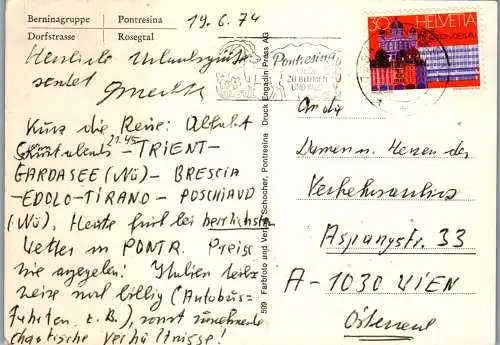 Berninagruppe Pontresina
Dorfstrasse Rosegtal
19.6.74
Herzliche Urlaubsgrüße
sendet
Kurz die Reise: Abfahrt
21.45 - TRIENT -
GARDASEE (Nä) - BRESCIA
- EDOLO - TIRANO - POSCHIAVO
(Nä). Heute früh bei herrlichstem
Wetter in PONTR. Preise
wie angegeben! Italien teils
weise noch billig (Autobus-
fahrten z.B.), sonst zunehmende
chaotische Verhältnisse!
599 Farbfoto und Verlag Schocher, Pontresina Druck Engadin Press AG
Pontresina
ZU BLUMEN
UND WILD
30 HELVETIA
An die
Damen und Herren des
Verkehrsamtes
Aspangstr. 33
A-1030 WIEN
Österreich